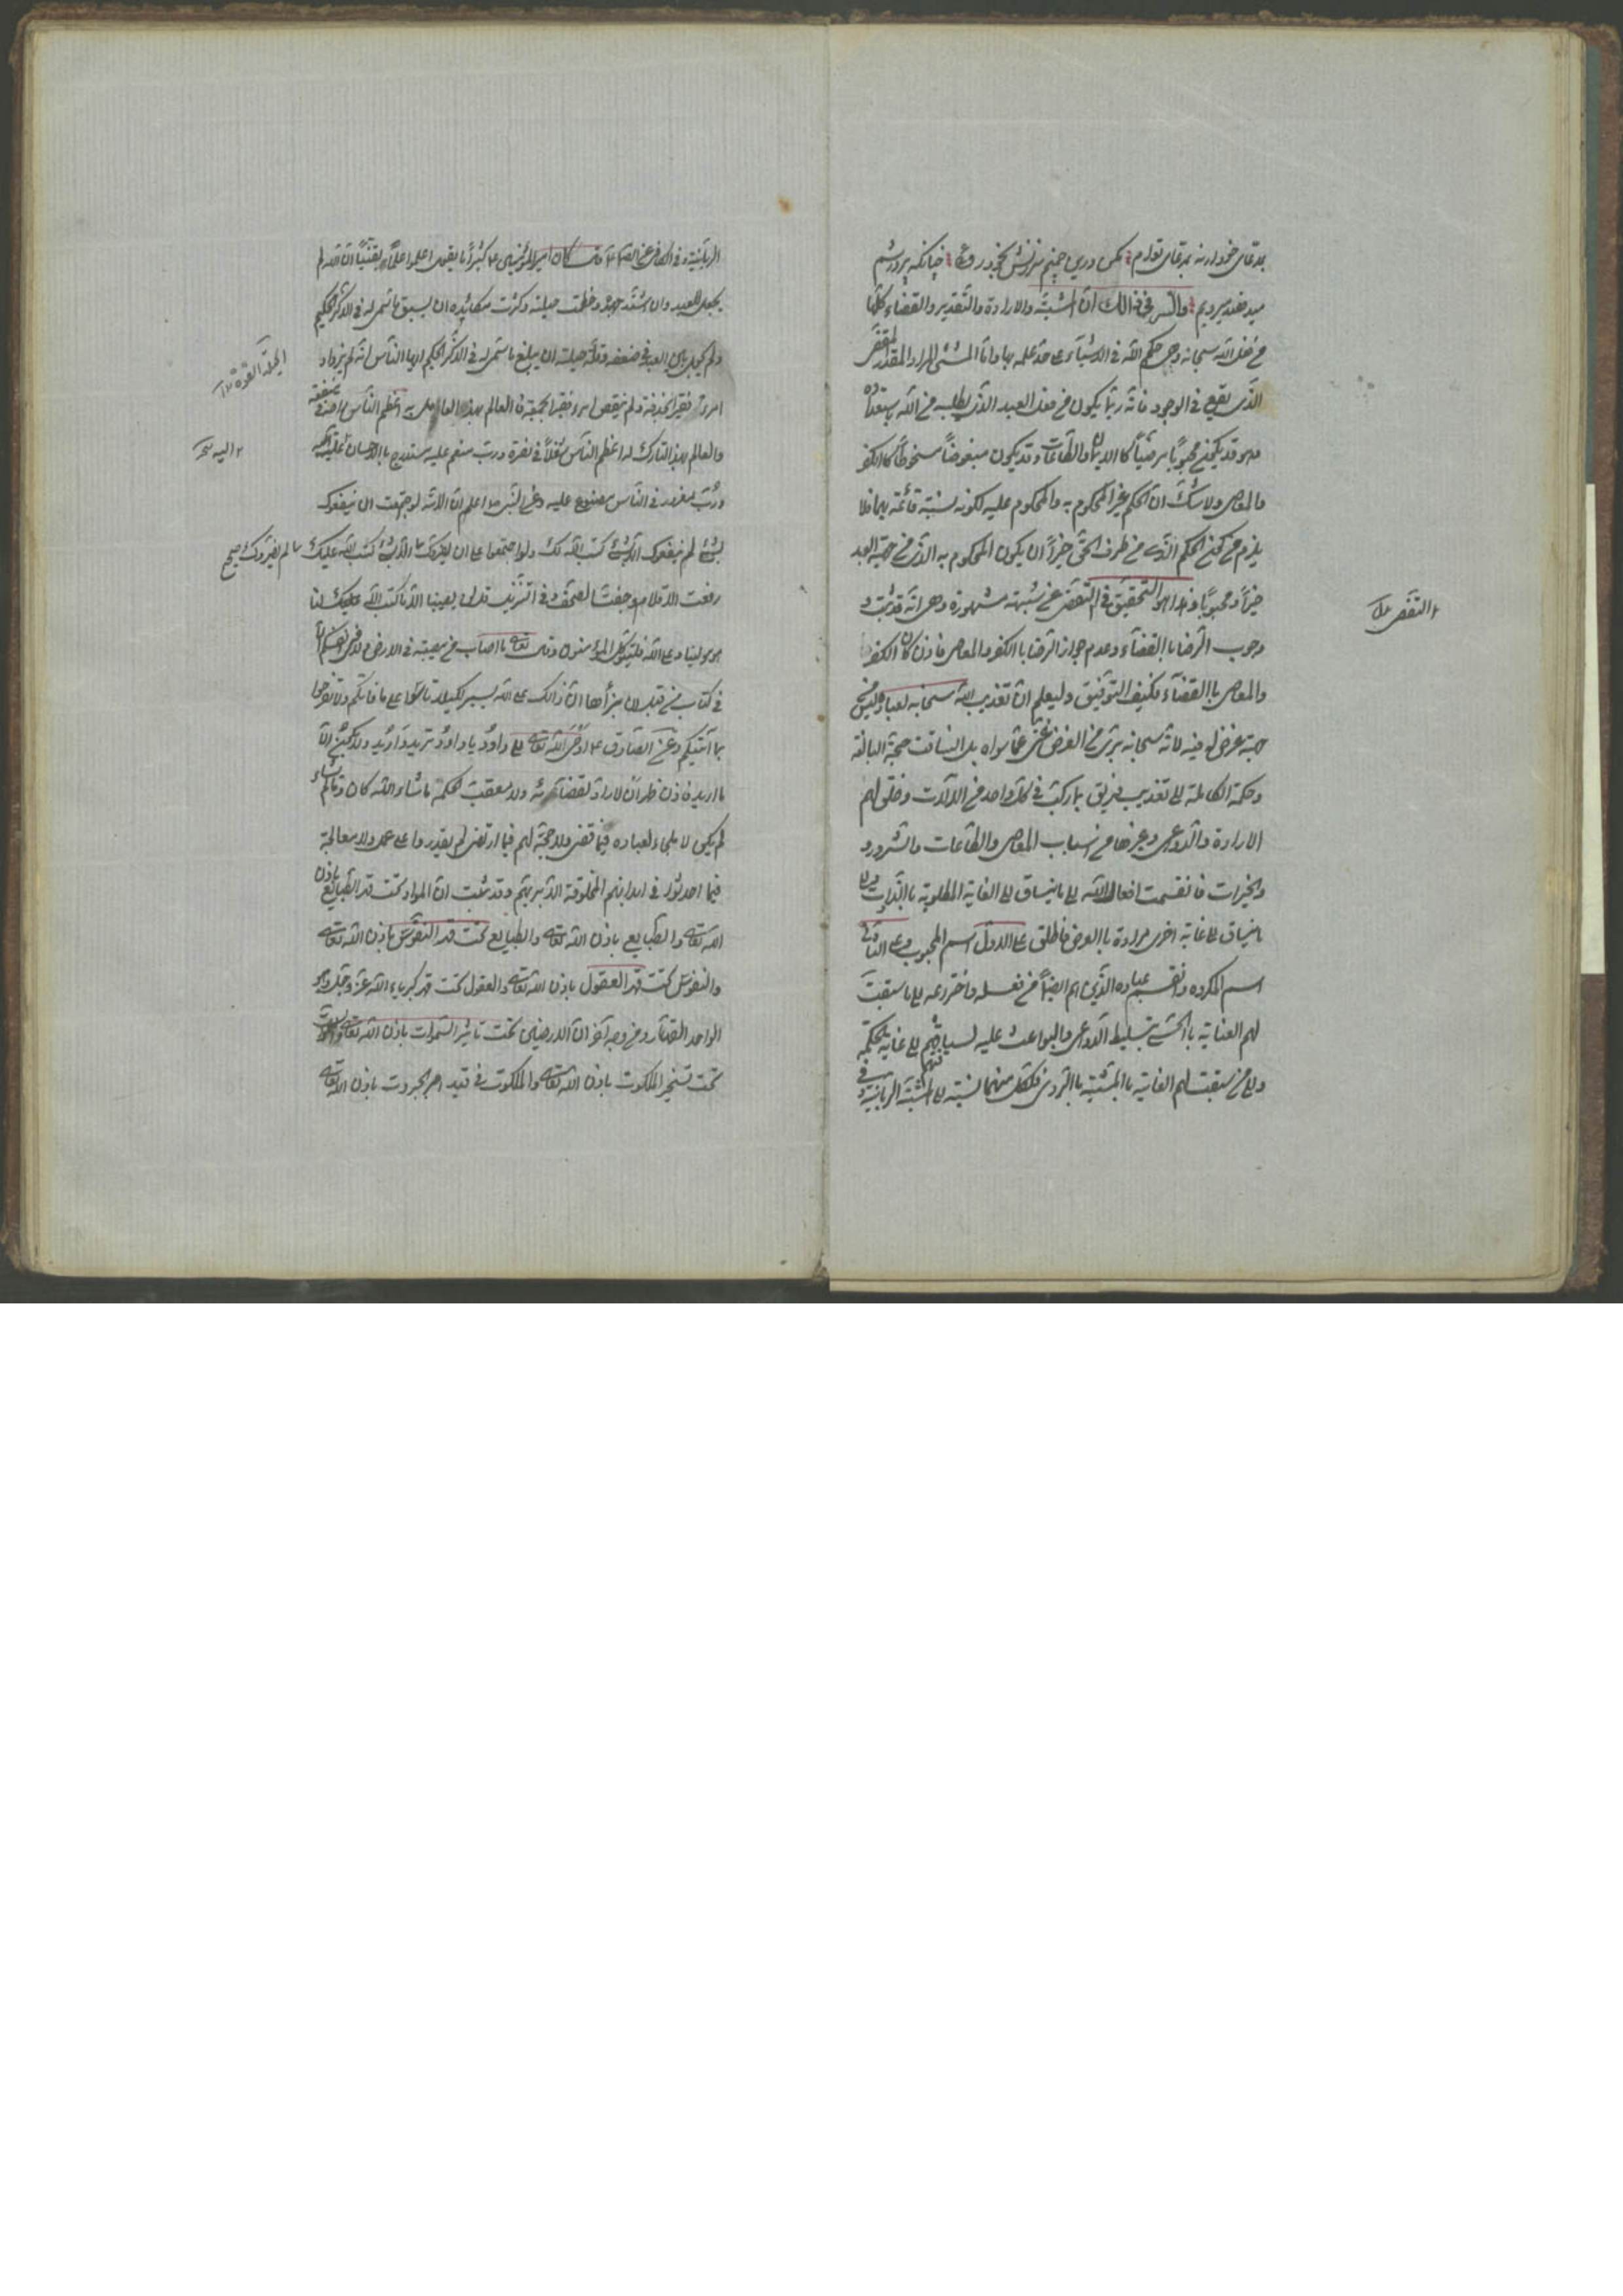 بمدعای خود نه بمدعای تو ام مکن درین چمنم سرزنش بخود روئی چنانکه پرورشم
میدهند میرویم والسر فی ذالک ان المشیّة والارادة والتقدیر والقضاء کلها
من فعل الله سبحانه وهی حکم الله فی الاشیاء علی حد علمه بها واما المشئی المراد المقدر المقضی
الذی یقع فی الوجود فانه ربما یکون من فعل العبد الذی یطلبه من الله باستعداده
وهو قد یکون محبوباً مرضیاً کالایمان والطاعات وقد یکون مبغوضاً مسخوطاً کالکفر
والمعاصی ولا شک ان الحکم غیر المحکوم به والمحکوم علیه لکونه نسبته قائمة بهما فلا
یلزم من کون الحکم الذی من طرف الحق خیراً ان یکون المحکوم به الذی من جهة العبد
خیراً ومحبوباً وهذا هو التحقیق فی التفصی عن شبهته مشهورة وهی انه قد ثبت
وجوب الرضا باالقضاء وعدم جواز الرضا باالکفر والمعاصی فاذن کان الکفر
والمعاصی باالقضاء فکیف التوفیق ولیعلم ان تعذیب الله سبحانه لعباده لیس من
جهة غرض له فیه لانه سبحانه بریء من الغرض غنی عما سواه بل انساقت حجة البالغة
وحکمة الکاملة الی تعذیب فریق بما رکبت فی کل واحد من الالات وخلق لهم
الارادة والدواعی وغیرها من اسباب المعاصی والطاعات والشرور
والخیرات فانقسمت افعال الله الی ما ینساق الی الغایة المطلوبة باالذات والی
ما ینساق الی غایة اخری مرادة باالعرض فاطلق علی الاول اسم المحبوب وعلی الثانی
اسم المکروه وانقسم عباده الذین هم ایضاً من فعله واختراعه الی ما سبقت
لهم العنایة باالحسنی بتسلیط الدواعی والبواعث علیه لسیاقهم الی غایة الحکمة
والی من سبقت لهم الغایة باالمشیة باالبردی فلکل منهما نسبة الی المشیّة الربانیة وفی
التفصی
الربانیة وفی الکافی عن الصادق قال کان امیر المؤمنین کثیراً ما یقول اعلموا علماً یقیناً ان الله لم
یجعل للعبد وان اشتد جهده وعظمت حیلته وکثرت مکائده ان یسبق ما سمی له فی الذکر الحکیم
ولم یحل بین العبد فی ضعفه وقلة حیلته ان یبلغ ما سمی له فی الذکر الحکیم ایها الناس انه لم یزداد
امرؤ نقیراً بحذقه ولم ینقص امرؤ نقیراً لحمقه فالعالم بهذا العامل به اعظم الناس راحة فی منفعته
والعالم بهذا التارک له اعظم الناس شغلاً فی مضرة ورب منعم علیه مستدرج باالاحسان علیه
ورب مغرور فی الناس مصنوع علیه وعن النبی اعلم ان الامة لو اجتمعت ان ینفعوک
بشئ لم ینفعوک الا بشئ کتب الله لک ولو اجتمعوا علی ان یضروک الا بشئ کتب الله علیک لم یضروک
رفعت الاقلام وجفت الصحف وفی التنزیل قل لن یصیبنا الا ما کتب الله لنا
هو مولینا وعلی الله فلیتوکل المؤمنون وقال تعالی ما اصاب من مصیبة فی الارض ولا فی انفسکم الا
فی کتاب من قبل ان نبرأها ان ذالک علی الله یسیر لکیلا تاسوا علی ما فاتکم ولا تفرحوا
بما آتیکم وعن الصادق اوحی الله تعالی الی داود یا داود ترید وارید ولا یکون الا
ما ارید فاذن ظهر ان لا راد لقضائه ولا معقب لحکمه ما شاء الله کان وما لم یشاء
لم یکن لا ملجاء لعباده فیما قضی ولا حجة لهم فیما ارتضی لم یقدروا علی عمل ولا معالجة
فیما احدثوا فی ابدانهم المخلوقة الا بربهم وقد ثبت ان المواد تحت قهر الطبایع باذن
الله تعالی والطبایع باذن الله تعالی والطبایع تحت قهر النفوس باذن الله تعالی
والنفوس تحت قهر العقول باذن الله تعالی والعقول تحت قهر کبریاء الله عز وجل وهو
الواحد القهار ومن وجه آخر ان الارضین تحت تاثیر السموات باذن الله تعالی والسموات
تحت تسخیر الملکوت باذن الله تعالی والملکوت فی قید امر الجبروت باذن الله تعالی